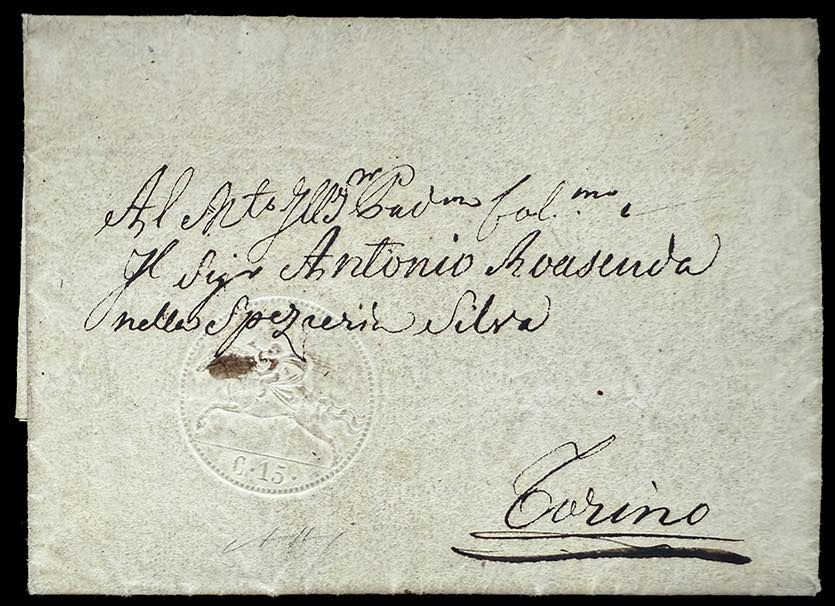 Al M.to Ill.r Pad.ron Col.mo
Il Sig.r Antonio Roasenda
nella Spezieria Silva
C. 15.
Torino